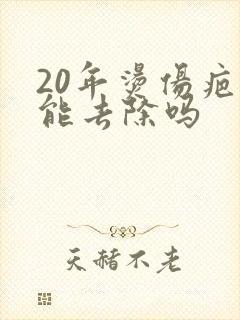 20年燙傷疤
能去除吗
天赭不老